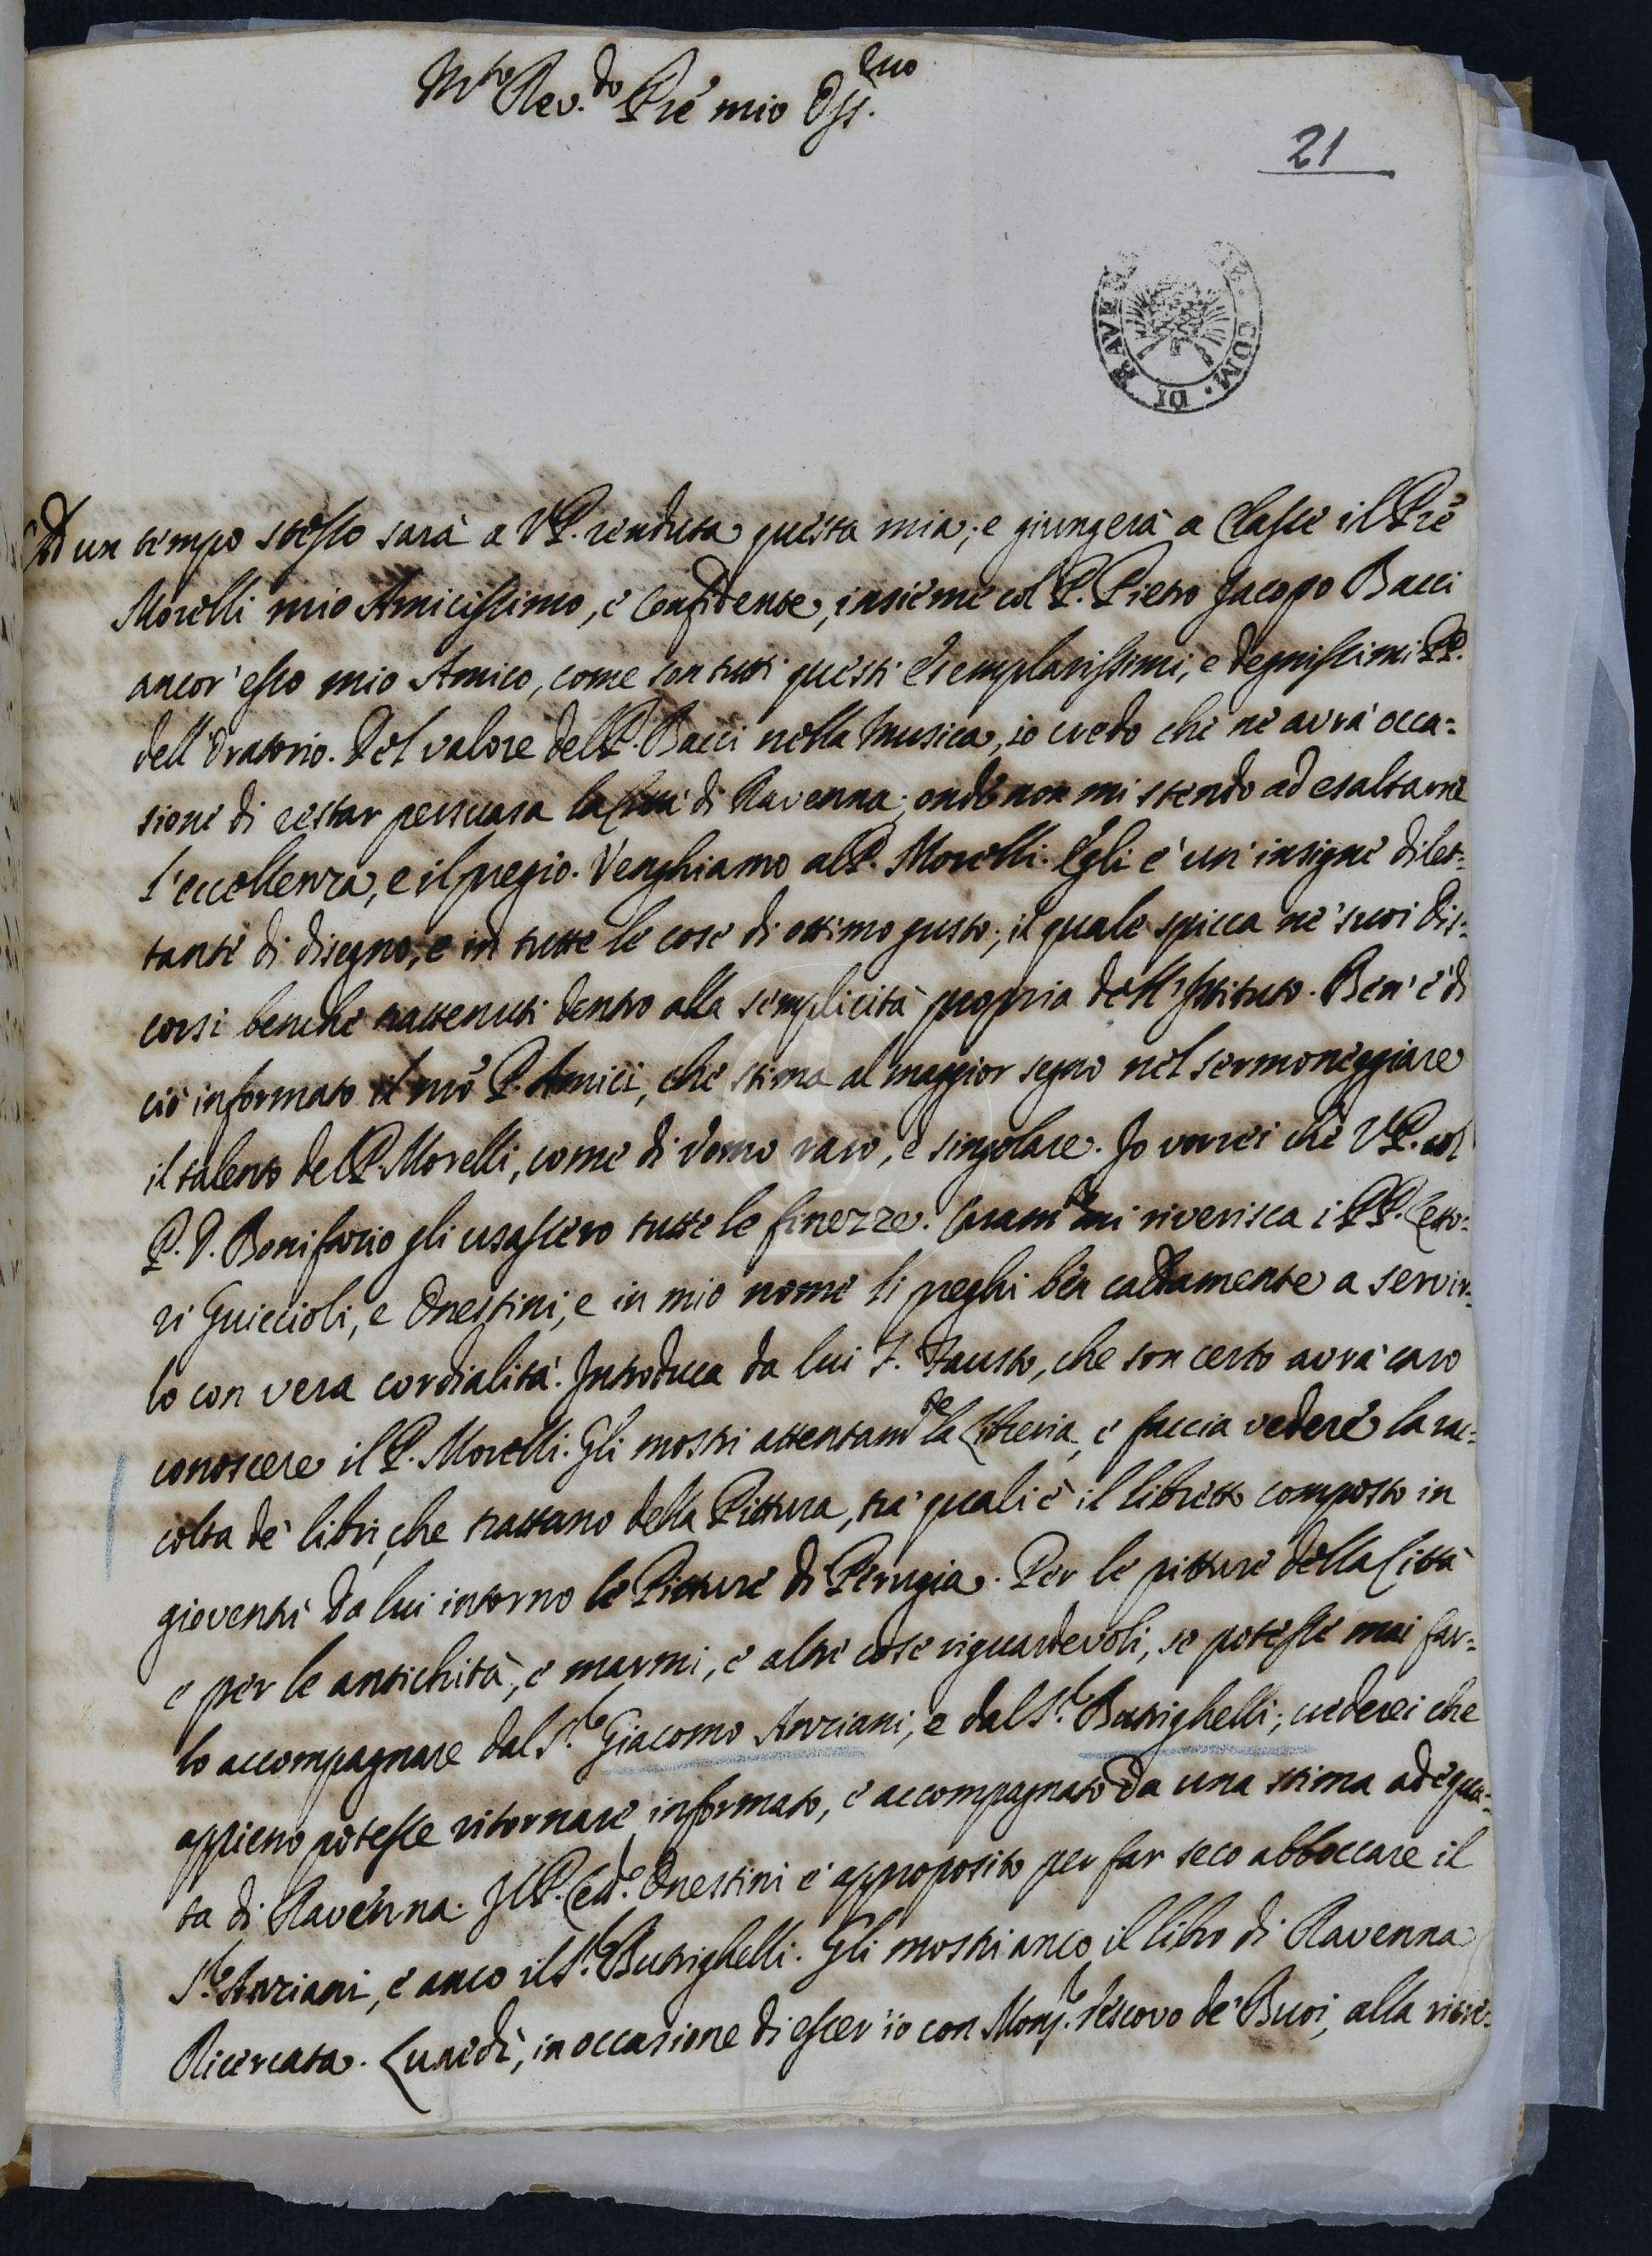 M.to Rev.do Pre mio Oss.mo
21
CUM. DI RAVE
Ad un tempo stesso sarà a V.P. renduta questa mia, e giungerà a Classe il Pre
Morelli mio Amicissimo, e Confidente, insieme col P. Pietro Jacopo Bacci
ancor' esso mio Amico, come son tutti questi esemplarissimi, e degnissimi PP.
dell'Oratorio. Del valore del P. Bacci nella Musica, io credo che ne avrà occa=
sione di restar persuasa la Città di Ravenna; onde non mi stendo ad esaltarne
l'eccellenza, e il pregio. Venghiamo al P. Morelli. Egli è un' insigne dilet=
tante di disegno, e in tutte le cose di ottimo gusto; il quale spicca ne' suoi dis=
corsi benche rattenuti dentro alla semplicità propria dell'Istituto. Ben' è di
ciò informato il nro P. Amici, che stima al maggior segno nel sermoneggiare
il talento del P. Morelli, come di Uomo raro, e singolare. Io vorrei che V.P. col
P. D. Bonifazio gli usassero tutte le finezze. Caram.te mi riverisca i PP. Letto=
ri Guiccioli, e Onestini, e in mio nome li preghi ben caldamente a servir=
lo con vera cordialità. Introduca da lui F. Fausto, che son certo avrà caro
conoscere il P. Morelli. Gli mostri attentam.te la Libreria, e faccia vedere la rac=
colta de' libri, che trattano della Pittura, tra' quali è il libretto composto in
gioventù da lui intorno le Pitture di Perugia. Per le pitture della Città
e per le antichità, e marmi, e altre cose riguardevoli, se potesse mai far=
lo accompagnare dal S.re Giacomo Anziani, e dal S.re Butrighelli; crederei che
appieno potesse ritornare informato, e accompagnato da una stima adegua=
ta di Ravenna. Il P. Onestini è approposito per far seco abboccare il
S.re Anziani, e anco il S.re Butrighelli. Gli mostri anco il libro di Ravenna
Ricercata. Lunedì, in occasione di esser' io con Mons.re Vescovo de' Buoi, alla